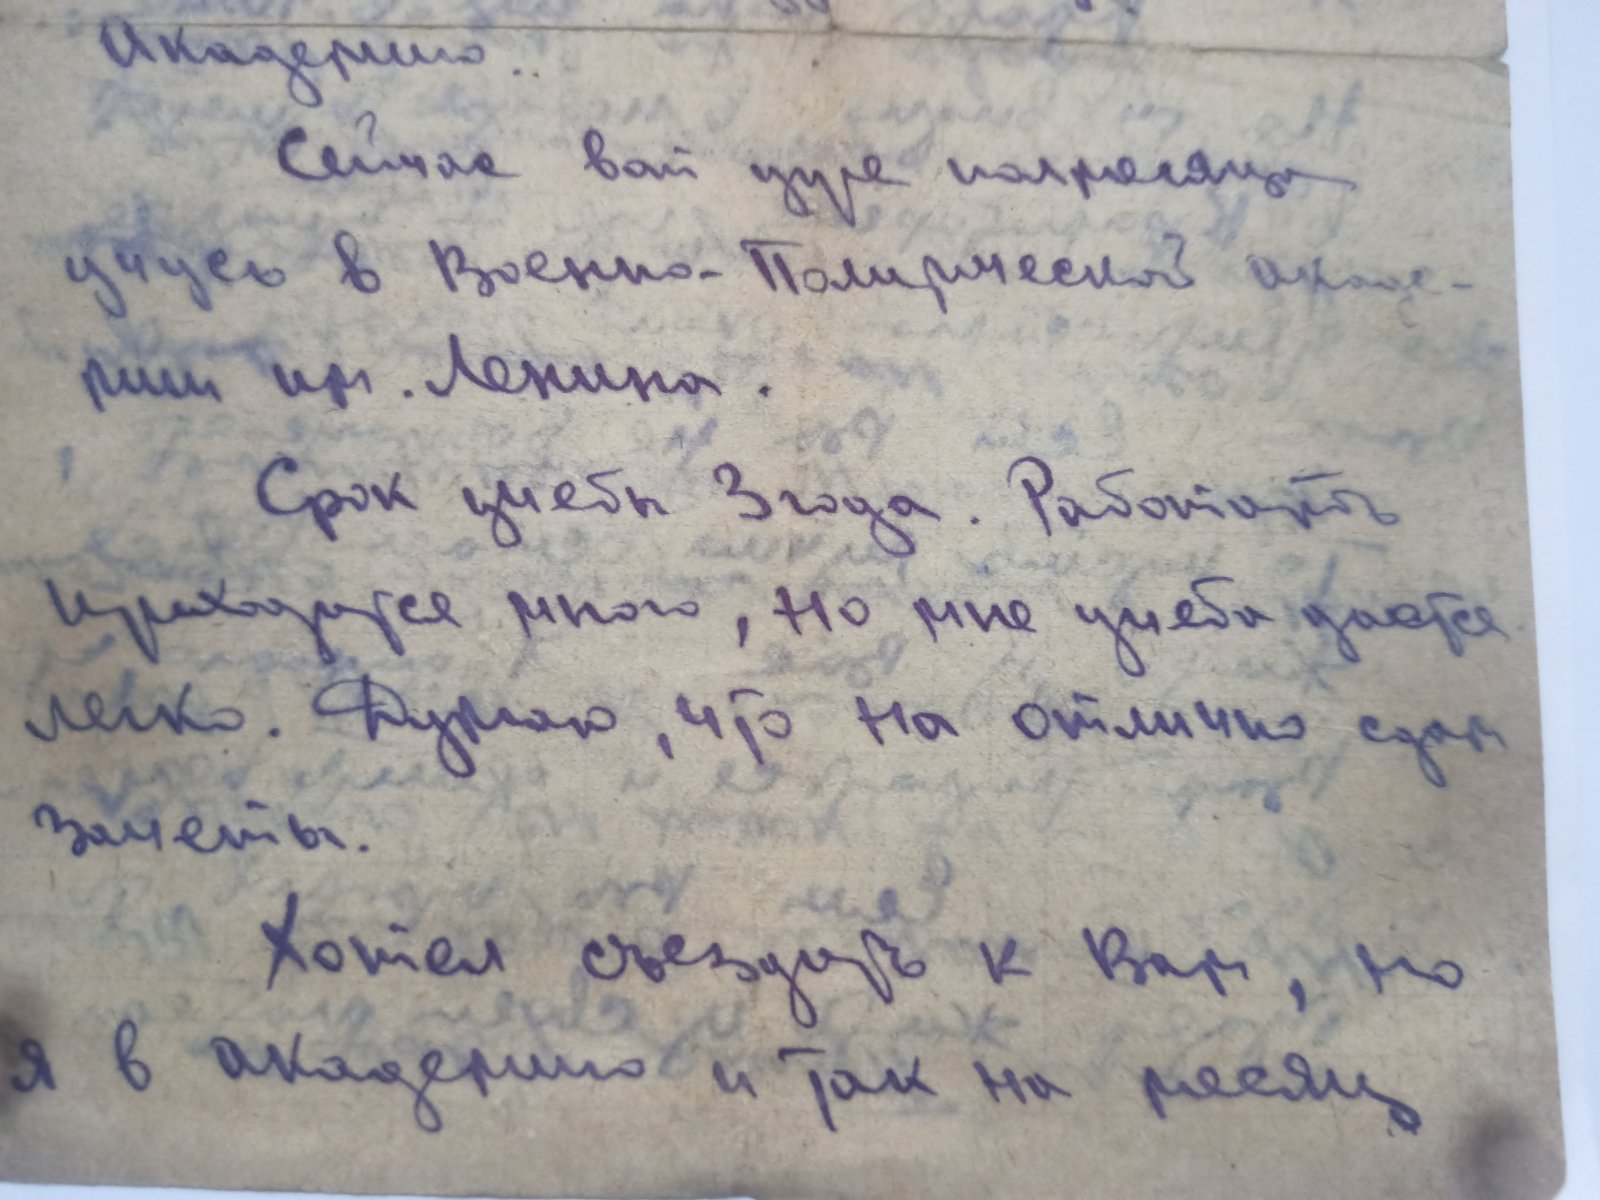 Академию..
Сейчас вот уже полмесяца
учусь в Военно-Политической акаде-
мии им. Ленина.
Срок учебы 3 года. Работать
приходится много, но мне учеба дается
легко. Думаю, что на отлично сдам
зачеты.
Хотел съездить к Вам, но
я в академию и так на месяц